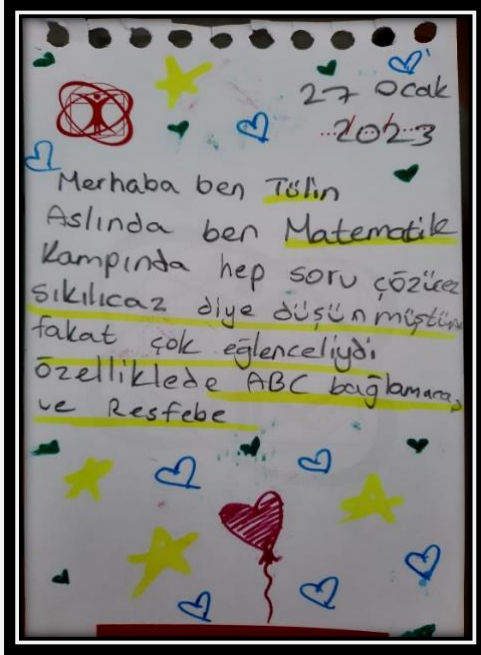 27 Ocak
2023
Merhaba ben Tülin
Aslında ben Matematik
Kampında hep soru çözücez
sıkılıcaz diye düşünmüştüm
fakat çok eğlenceliydi
özelliklede ABC bağlamaca,
ve Resfebe